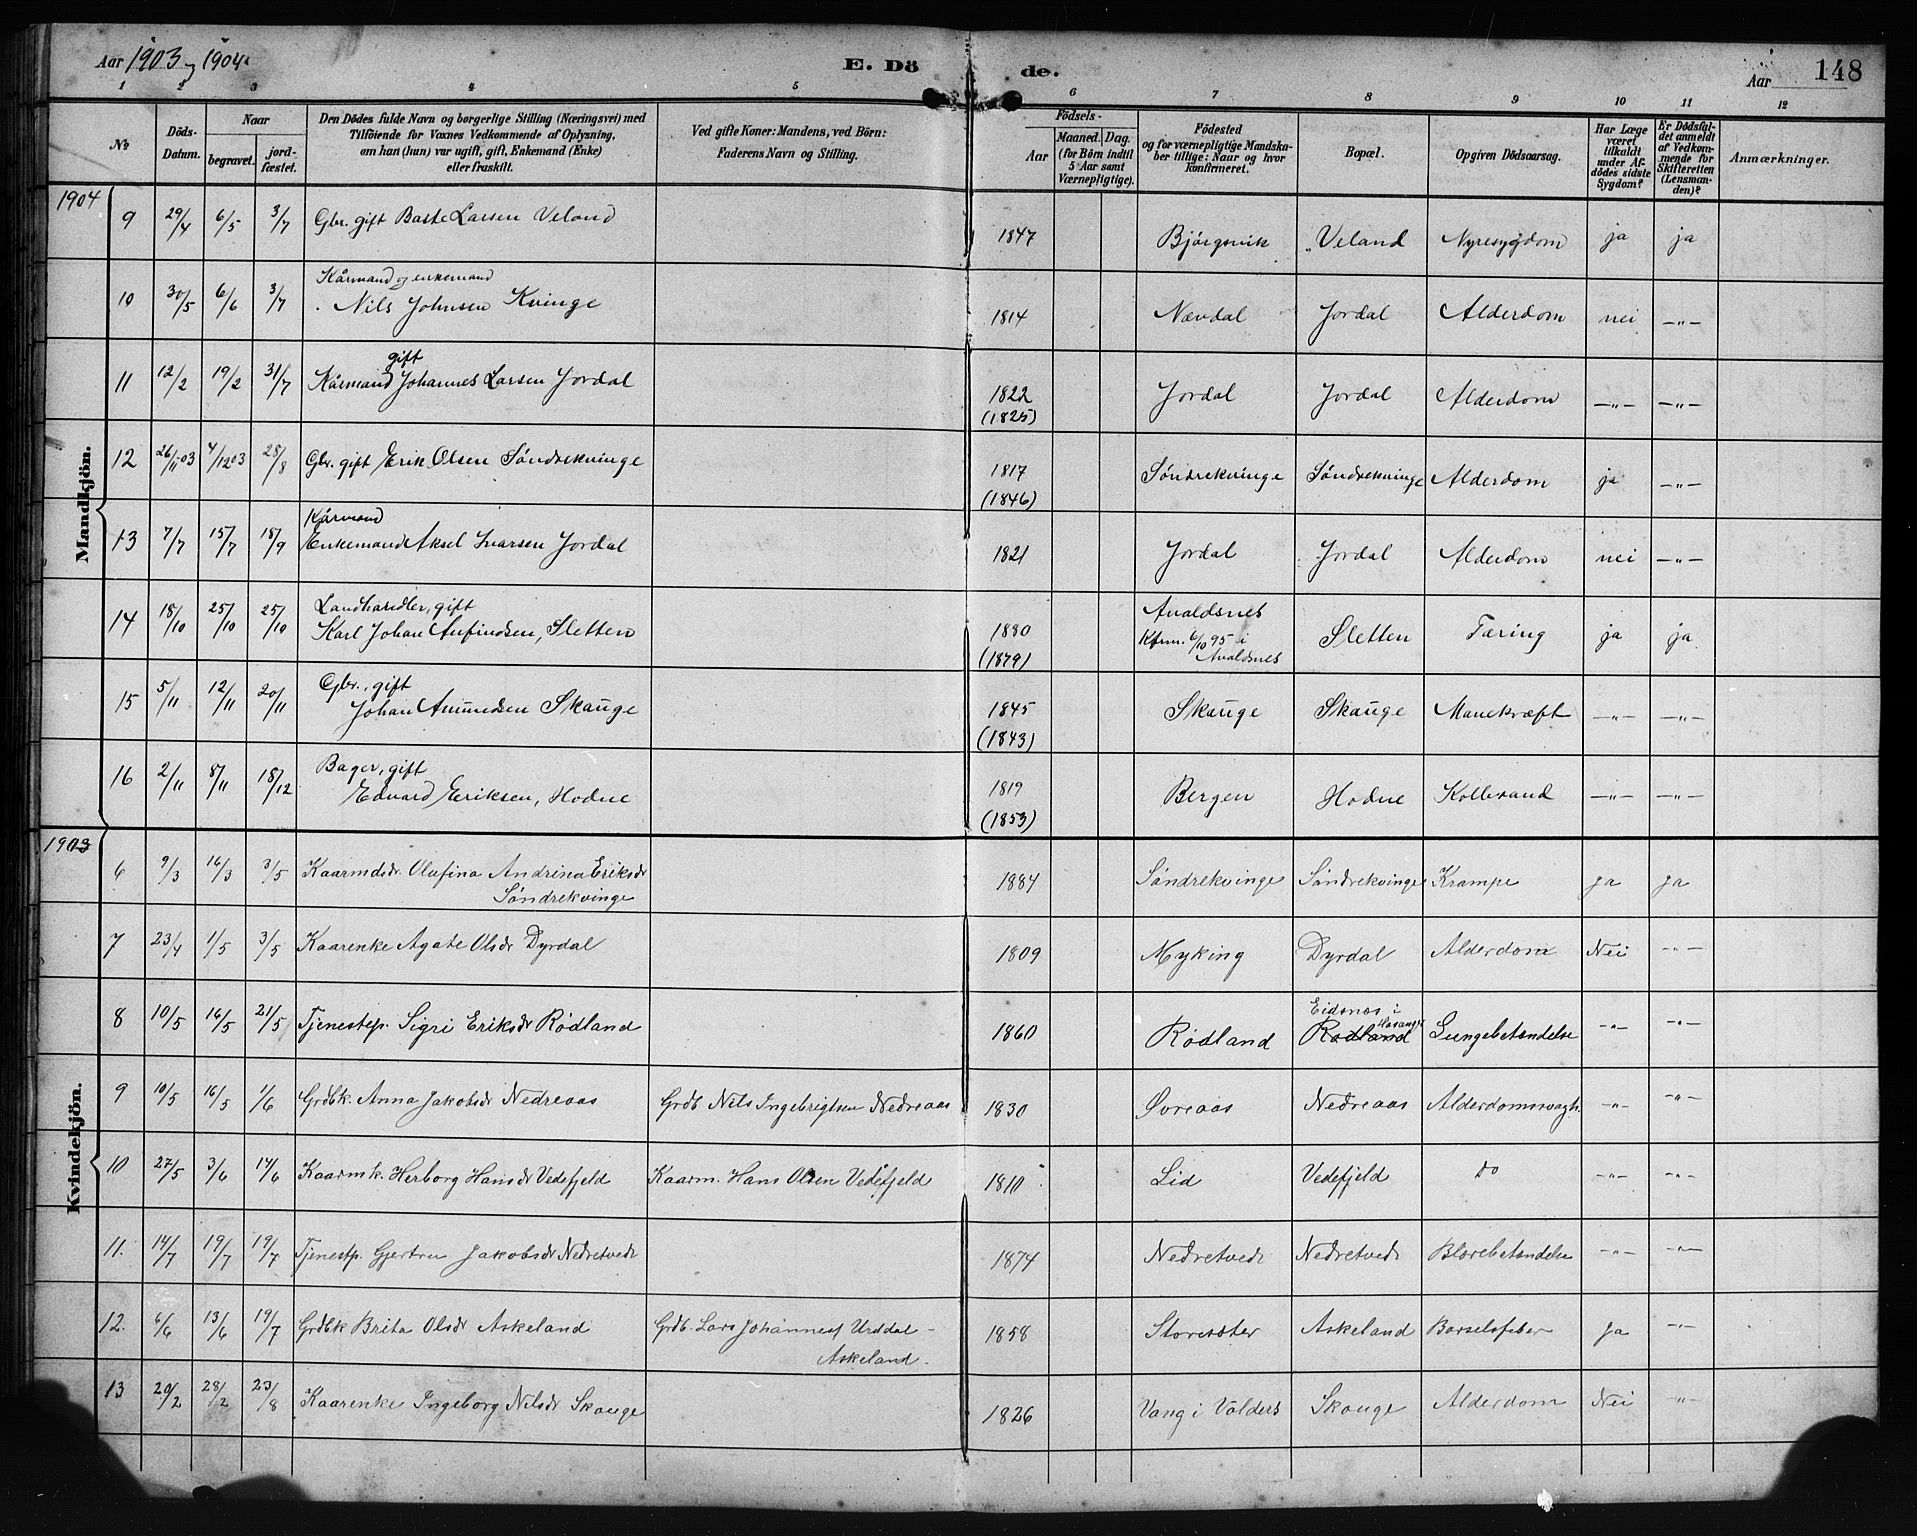 Aar 1903 og 1904.
E. Döde.
Aar 148
1 2 3 4 5 6 7 8 9 10 11 12
№
Döds-Datum.
Naar
begravet.
jord-fæstet.
Den Dödes fulde Navn og borgerlige Stilling (Næringsvei) med
Tilföiende for Voxnes Vedkommende af Oplysning,
om han (hun) var ugift, gift, Enkemand (Enke)
eller fraskilt.
Ved gifte Koner: Mandens, ved Börn:
Faderens Navn og Stilling.
Födsels-
Aar
Maaned. Dag.
(for Börn indtil
5 Aar samt
Værnepligtige).
Födested
og for værnepligtige Mandska-
ber tillige: Naar og hvor
konfirmeret.
Bopæl.
Opgiven Dödsaarsag.
Har Læge
været
tilkaldt
under Af-
dödes sidste
Sygdom?
Er Dödsfal-
det anmeldt
af Vedkom-
mende for
Skifteretten
(Lensman-
den)?
Anmærkninger.
Mandkjön.
1904
9 29/4 6/5 3/7 Gbr. gift Baste Larsen Veland 1847 Bjørgsvik Veland Nyresygdom ja ja
Kårmand og enkemand
10 30/5 6/6 3/7 Nils Johnsen Kvinge 1814 Nævdal Jordal Alderdom nei —„—
gift
11 12/2 19/2 31/7 Kårmand Johannes Larsen Jordal 1822 Jordal Jordal Alderdom —„— —„—
(1825)
12 26/11 03 4/12 03 28/8 Gbr. gift Erik Olsen Söndrekvinge 1817 Söndrekvinge Söndrekvinge Alderdom ja —„—
(1846)
Kårmand
13 7/7 15/7 18/9 Enkemand Aksel Ivarsen Jordal 1821 Jordal Jordal Alderdom nei —„—
Landhandler, gift Avaldsnes
14 18/10 25/10 25/10 Karl Johan Anfindsen, Sletten 1880 Kfrm. 6/10 95 i Sletten Tæring ja ja
(1879) Avaldsnes
Gbr., gift
15 5/11 12/11 20/11 Johan Amundsen Skauge 1845 Skauge Skauge Mavekræft —„— —„—
(1843)
Bager, gift
16 2/11 8/11 18/12 Edvard Eriksen, Hodne 1819 Bergen Hodne Kolbrand —„— —„—
(1853)
Kvindekjön.
1903
6 9/3 16/3 3/5 Kaarmdsdr. Olafina Andrina Eriksdr 1884 Söndrekvinge Söndrekvinge Krampe Ja Ja
Söndrekvinge
7 23/4 1/5 3/5 Kaarenke Agate Olsdr Dyrdal 1809 Myking Dyrdal Alderdom Nei —"—
Eidsnes i
Hosanger
8 10/5 16/5 21/5 Tjenestep. Sigri Eriksdr Rödland 1860 Rödland Rödland Lungebetændelse —"— —"—
9 10/5 16/5 1/6 Grdbk. Anna Jakobsdr Nedreaas Grdb Nils Ingebrigtsen Nedreaas 1830 Øvreaas Nedreaas Alderdomssvagh. —"— —"—
10 27/5 3/6 14/6 Kaarmk. Herborg Hansdr Vedefjeld Kaarm. Hans Olsen Vedefjeld 1810 Lid Vedefjeld Do —"— —"—
11. 14/7 19/7 19/7 Tjenestp. Gjertru Jakobsdr Nedretvedt 1874 Nedretvedt Nedretvedt Blærebetændelse —"— —"—
12. 6/6 13/6 19/7 Grdbk Brita Olsdr Askeland Grdb. Lars Johannesf Urddal - 1858 Storesæter Askeland Barselsfeber Ja —"—
Askeland.
13 20/2 28/2 23/8 Kaarenke Ingeborg Nilsdr Skauge 1826 Vang i Valders Skauge Alderdom Nei —"—